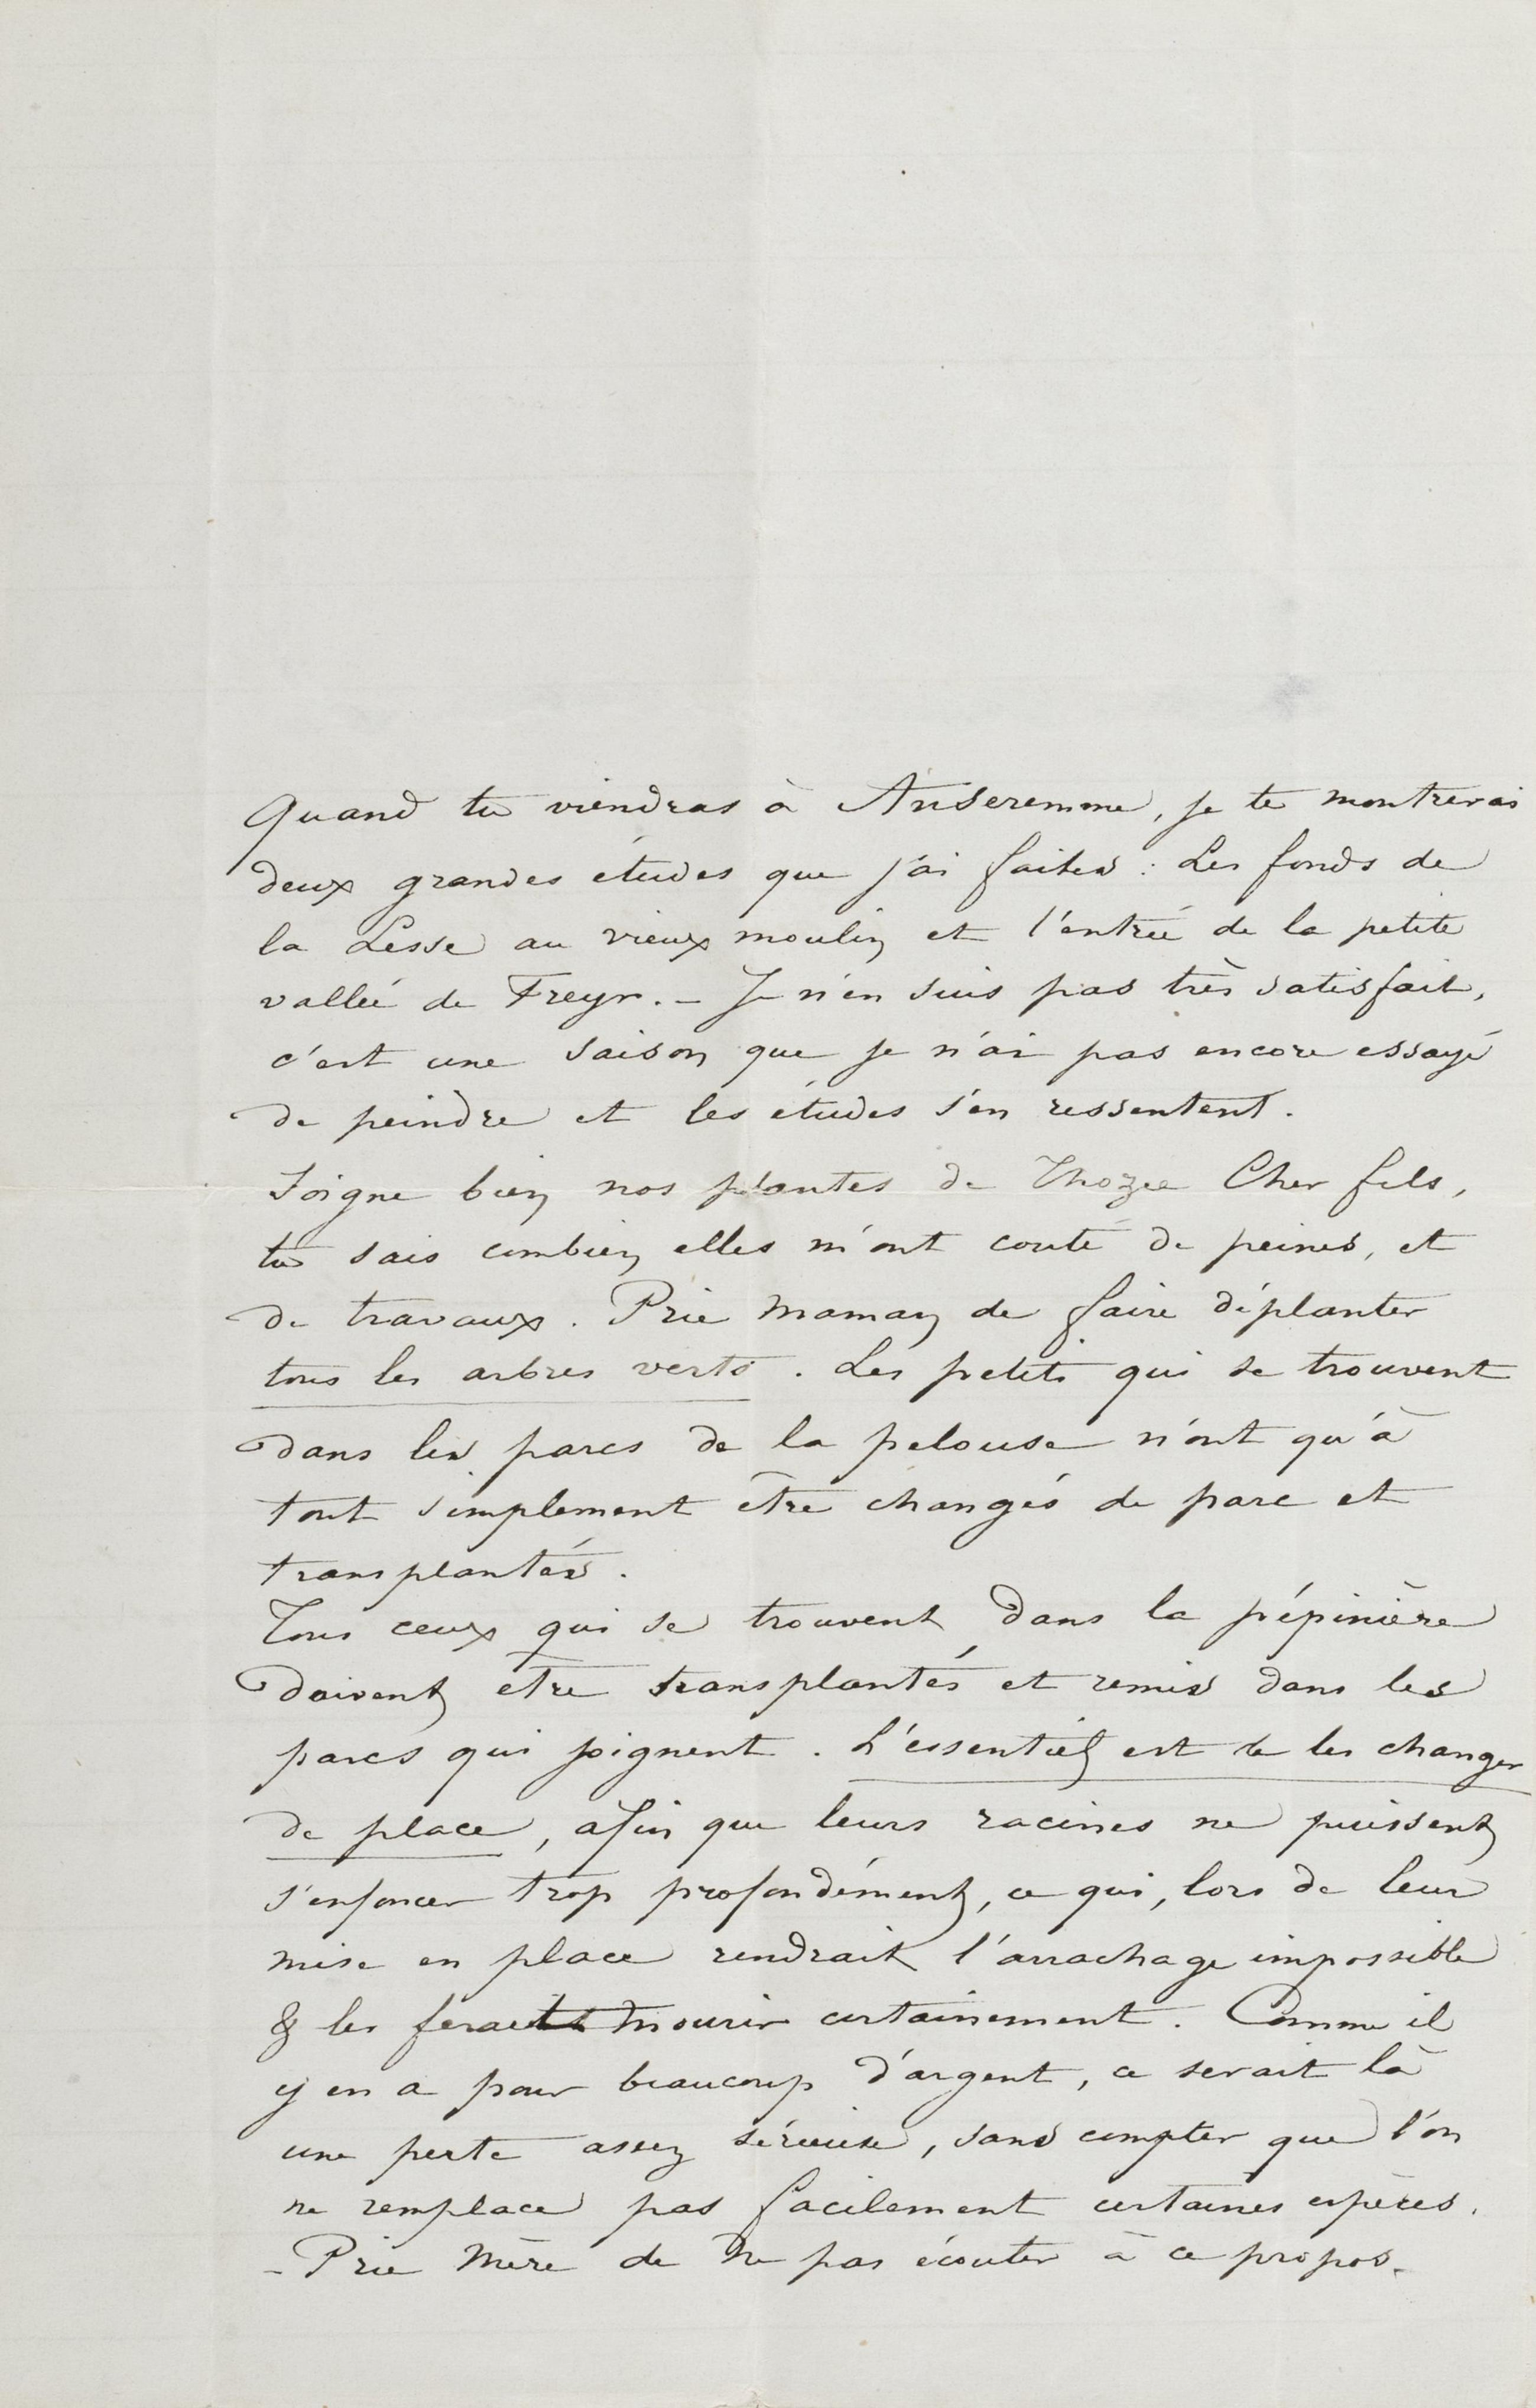 Quand tu viendras à Anseremme, je te montrerai
deux grandes études que j'ai faites : Les fonds de
la Lesse au vieux moulin et l'entrée de la petite
vallée de Freyr. – Je n'en suis pas très satisfait,
c'est une saison que je n'ai pas encore essayé
de peindre et les études s'en ressentent.
Soigne bien nos plantes de Thozée Cher fils,
tu sais combien elles m'ont couté de peines, et
de travaux. Prie Maman de faire déplanter
tous les arbres verts. Les petits qui se trouvent
dans les parcs de la pelouse n'ont qu'à
tout simplement être changés de parc et
transplantés.
Tous ceux qui se trouvent dans la pépinière
doivent etre transplantés et remis dans les
parcs qui joignent. L'essentiel est de les changer
de place, afin que leurs racines ne puissent
s'enfoncer trop profondément, ce qui, lors de leur
mise en place rendrait l'arrachage impossible
& les ferait mourir certainement. Comme il
y en a pour beaucoup d'argent, ce serait là
une perte assez sérieuse, sans compter que l'on
ne remplace pas facilement certaines espèces.
– Prie Mère de ne pas écouter à ce propos.